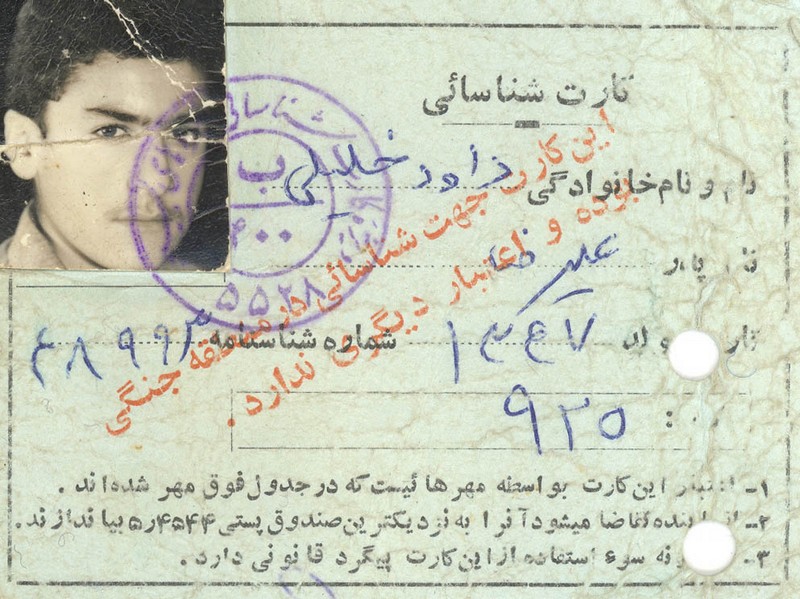 کارت شناسائی
نام و نام خانوادگی داود خلیلی
نام پدر
تاریخ تولد ۱۳۴۷ شماره شناسنامه ۴۸۹۹۳
۹۲۵
این کارت جهت شناسائی در منطقه جنگی
بوده و اعتبار دیگری ندارد.
شناسائی
ب
۴۰۰
۱- اعتبار این کارت بواسطه مهر هائیست که در جدول فوق مهر شده اند.
۲- از یابنده تقاضا میشود آنرا به نزدیکترین صندوق پستی بیاندازند.
۳- هرگونه سوء استفاده از این کارت پیگرد قانونی دارد.